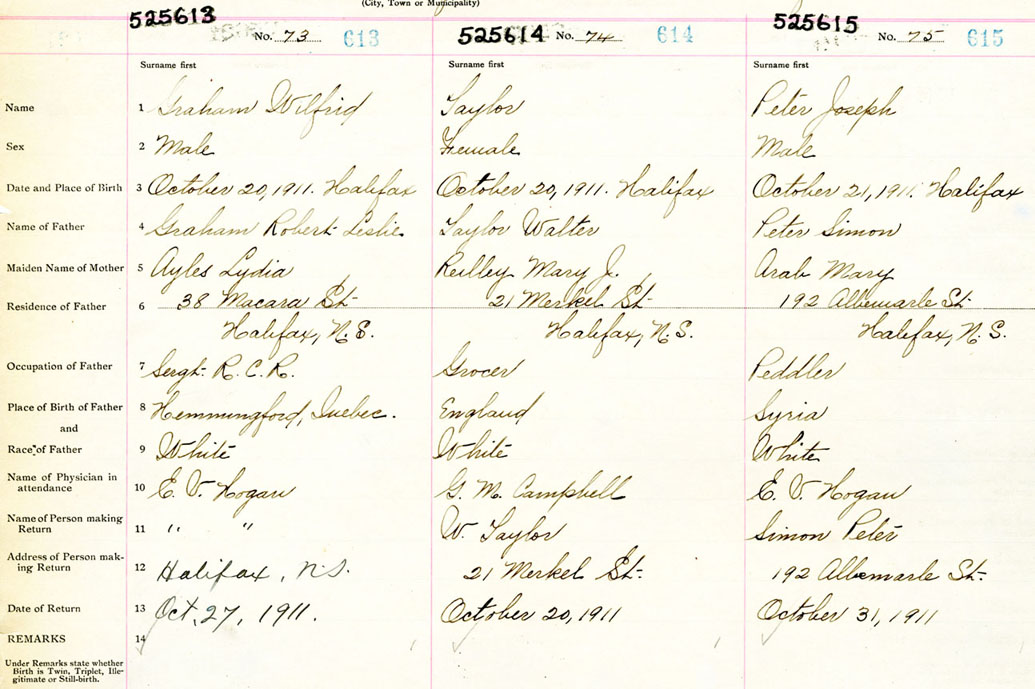 (City, Town or Municipality)
525613 No. 73 613 525614 No. 74 614 525615 No. 75 615
Surname first Surname first Surname first
Name 1 Graham Wilfrid Taylor Peter Joseph
Sex 2 Male Female Male
Date and Place of Birth 3 October 20, 1911. Halifax October 20, 1911. Halifax October 21, 1911. Halifax
Name of Father 4 Graham Robert Leslie Taylor Walter Peter Simon
Maiden Name of Mother 5 Ayles Lydia Reilley Mary J. Arab Mary
Residence of Father 6 38 Macara St. 21 Merkel St. 192 Albemarle St.
Halifax, N.S. Halifax, N.S. Halifax, N.S.
Occupation of Father 7 Sergt. R.C.R. Grocer Peddler
Place of Birth of Father 8 Hemmingford, Quebec. England Syria
and
Race of Father 9 White White White
Name of Physician in
attendance 10 E. V. Hogan G. M. Campbell E. V. Hogan
Name of Person making
Return 11 " " W. Taylor Simon Peter
Address of Person mak-
ing Return 12 Halifax, N.S. 21 Merkel St. 192 Albemarle St.
Date of Return 13 Oct. 27, 1911. October 20, 1911 October 31, 1911
REMARKS 14
Under Remarks state whether
Birth is Twin, Triplet, Ille-
gitimate or Still-birth.